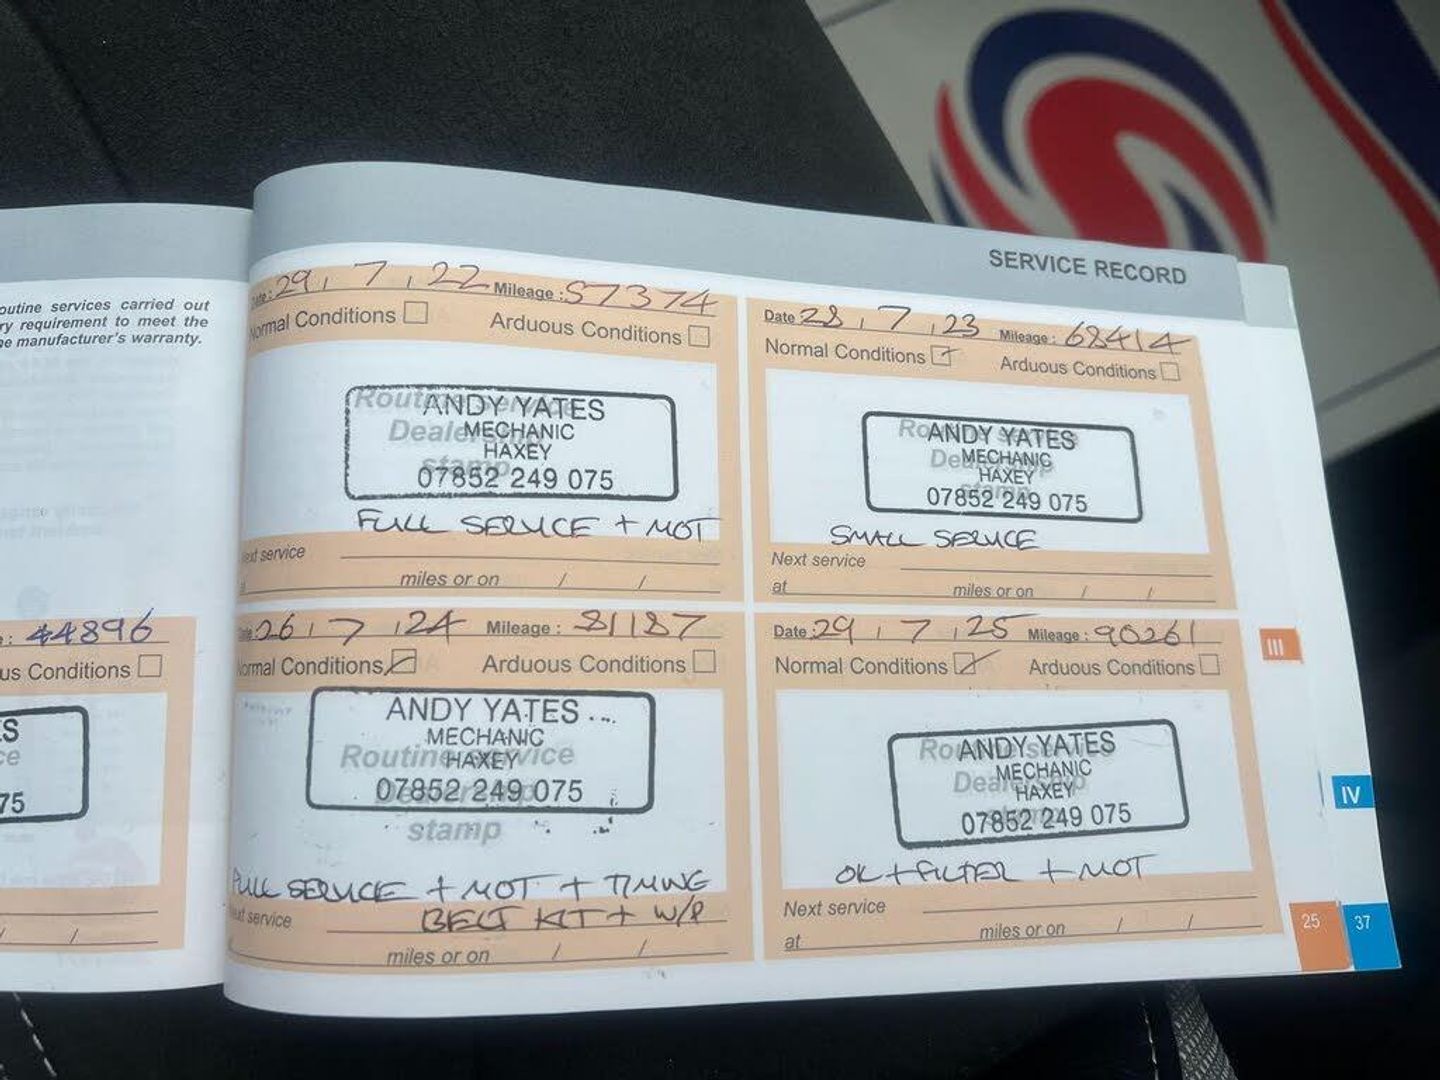 outine services carried out
ry requirement to meet the
e manufacturer's warranty.
: 44896
us Conditions
S
ce
75
SERVICE RECORD
Date: 29, 7, 22 Mileage: 57374
Normal Conditions Arduous Conditions
Routine service
Dealership
stamp
ANDY YATES
MECHANIC
HAXEY
07852 249 075
FULL SERVICE + MOT
Next service
at miles or on / /
Date 28, 7, 23 Mileage: 68414
Normal Conditions Arduous Conditions
Routine service
Dealership
stamp
ANDY YATES
MECHANIC
HAXEY
07852 249 075
SMALL SERVICE
Next service
at miles or on / /
Date: 26, 7, 24 Mileage: 81187
Normal Conditions Arduous Conditions
ANDY YATES
MECHANIC
HAXEY
07852 249 075
Routine service
Dealership
stamp
FULL SERVICE + MOT + TIMING
BELT KIT + W/P
Next service
miles or on / /
Date: 29, 7, 25 Mileage: 90261
Normal Conditions Arduous Conditions
Routine service
Dealership
stamp
ANDY YATES
MECHANIC
HAXEY
07852 249 075
+ FILTER + MOT
Next service
at miles or on / /
III
IV
25 37